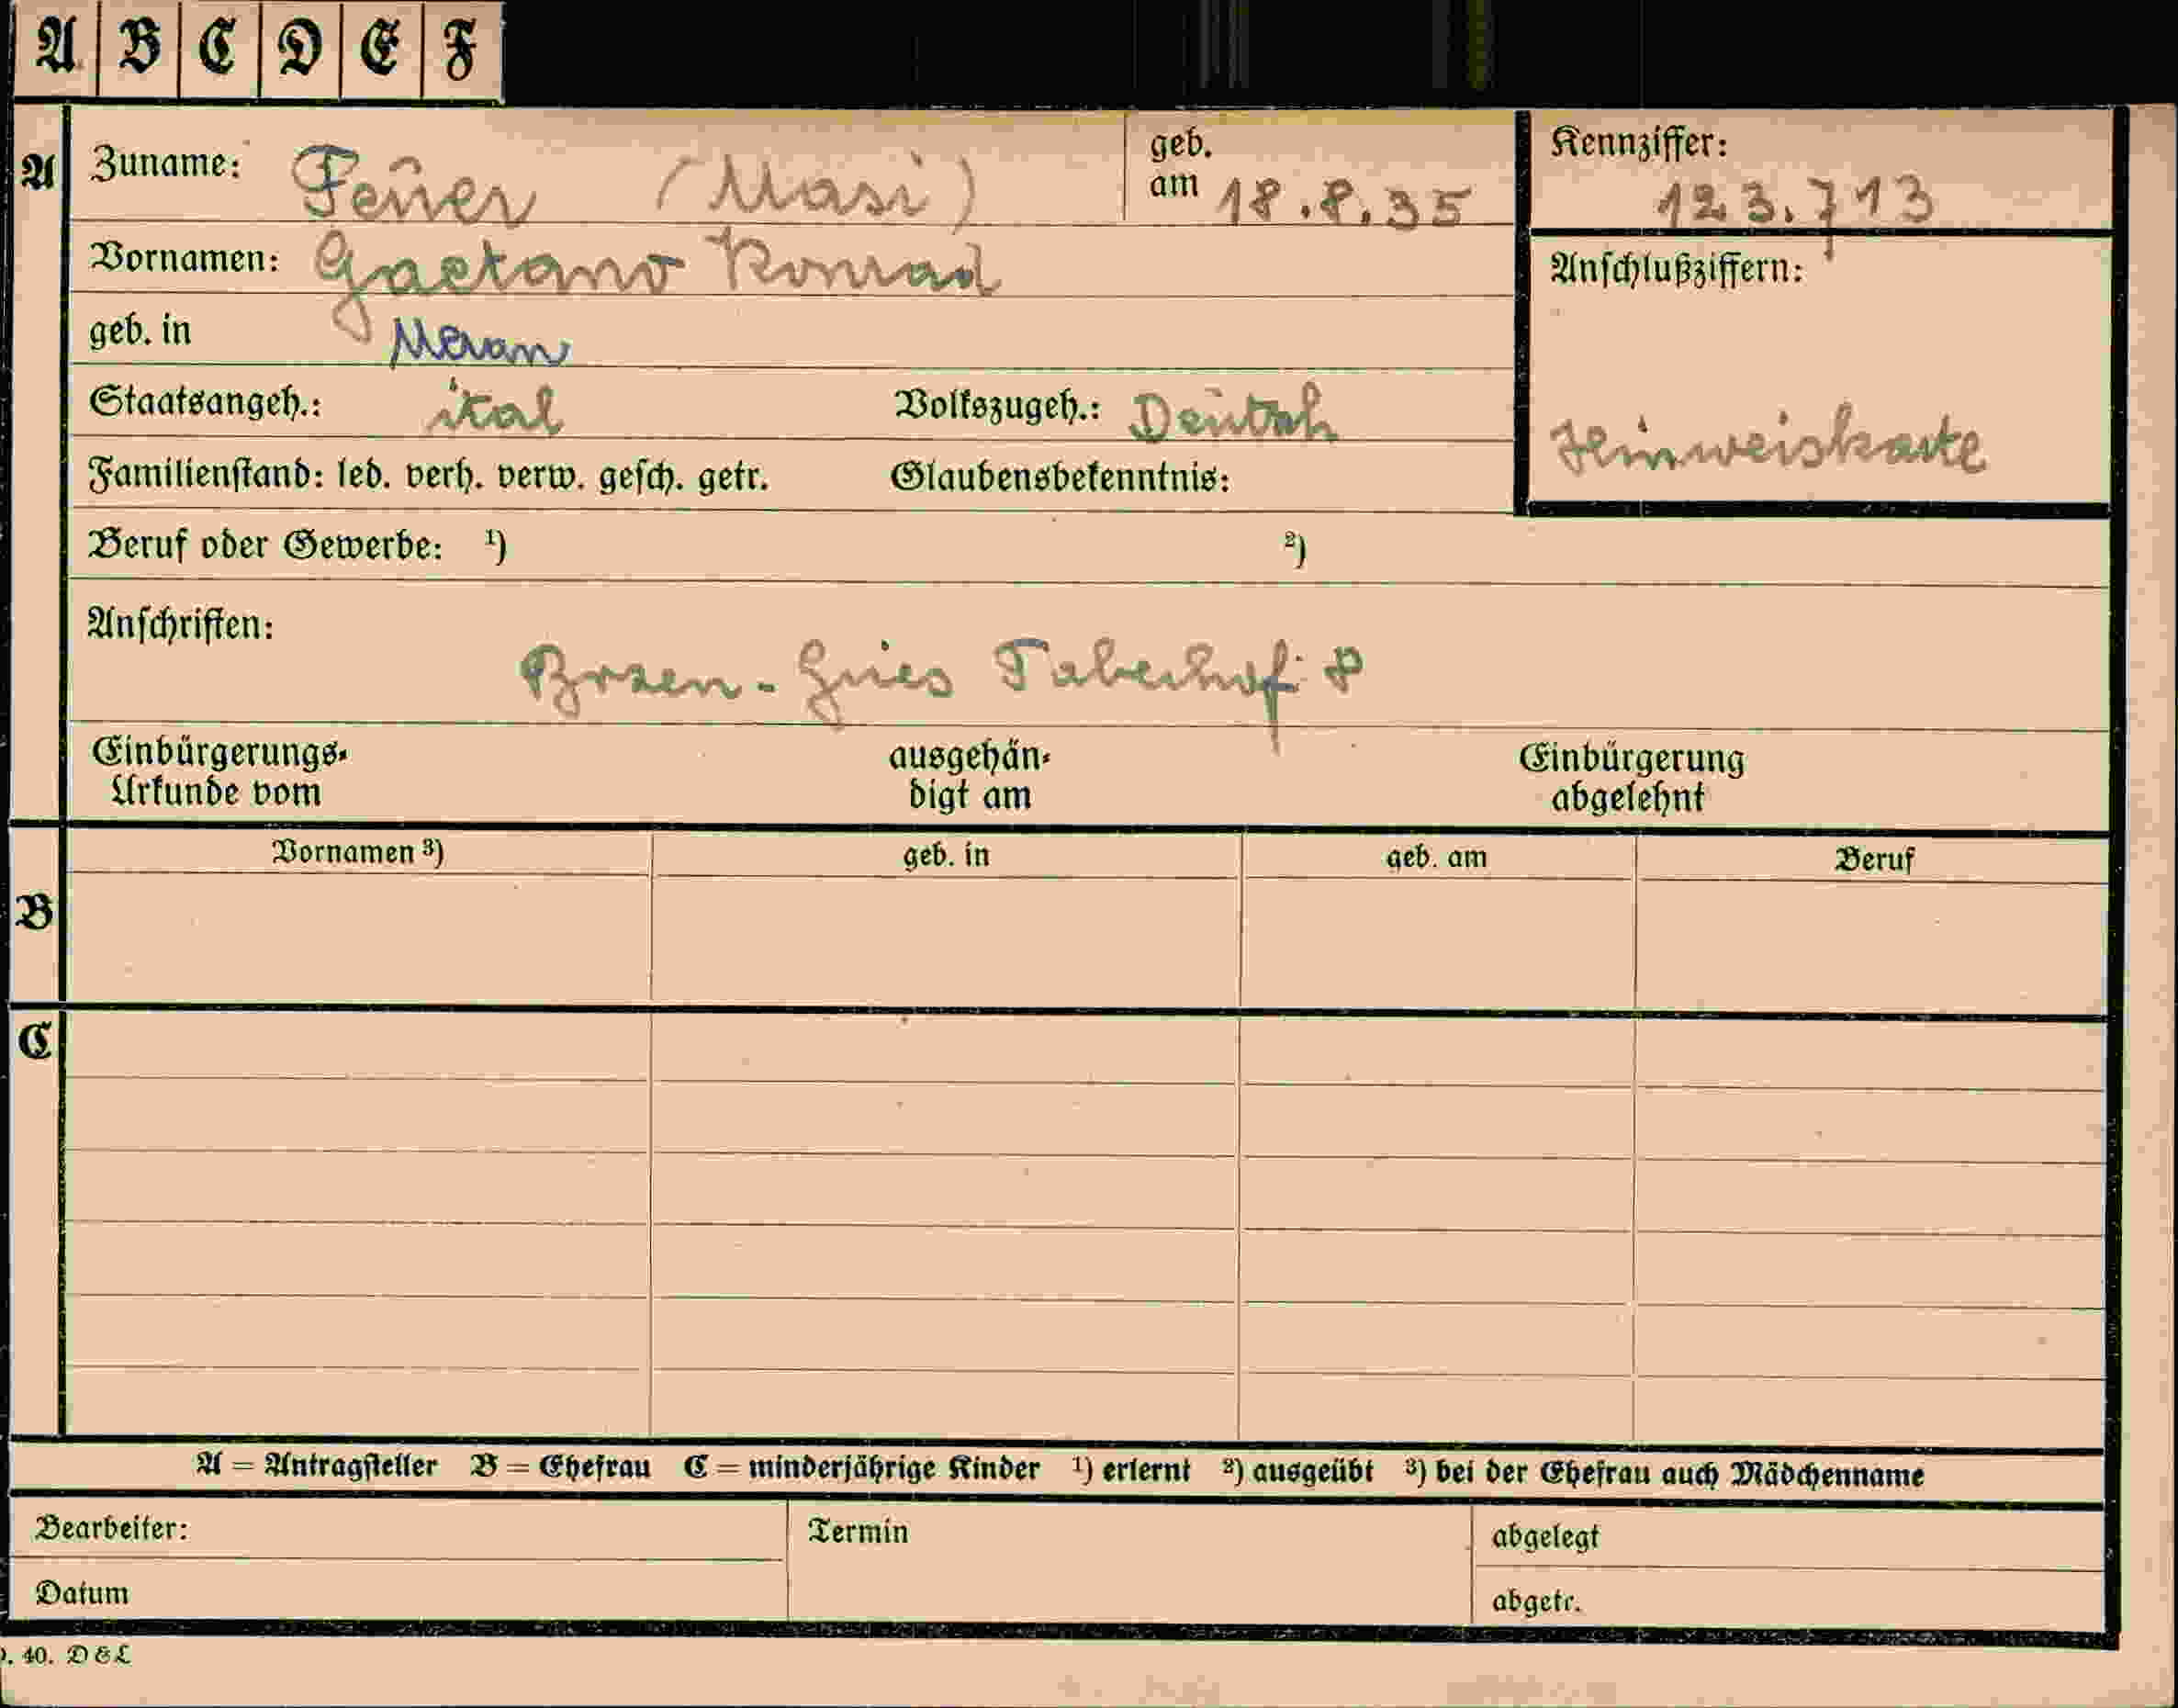 A B C D E F
A Zuname: Feuer (Masi) geb. am 18.8.35 Kennziffer: 123.713
Vornamen: Gaetano Konrad Anschlußziffern:
geb. in Meran
Staatsangeh.: ital Volkszugeh.: Deutsch Hinweiskarte
Familienstand: led. verh. verw. gesch. getr. Glaubensbekenntnis:
Beruf oder Gewerbe: ¹) ²)
Anschriften:
Bozen - Gries 8
Einbürgerungs- ausgehän- Einbürgerung
Urkunde vom digt am abgelehnt
Vornamen ³) geb. in geb. am Beruf
B
C
A = Antragsteller B = Ehefrau C = minderjährige Kinder ¹) erlernt ²) ausgeübt ³) bei der Ehefrau auch Mädchenname
Bearbeiter: Termin abgelegt
Datum abgetr.
. 40. D & L